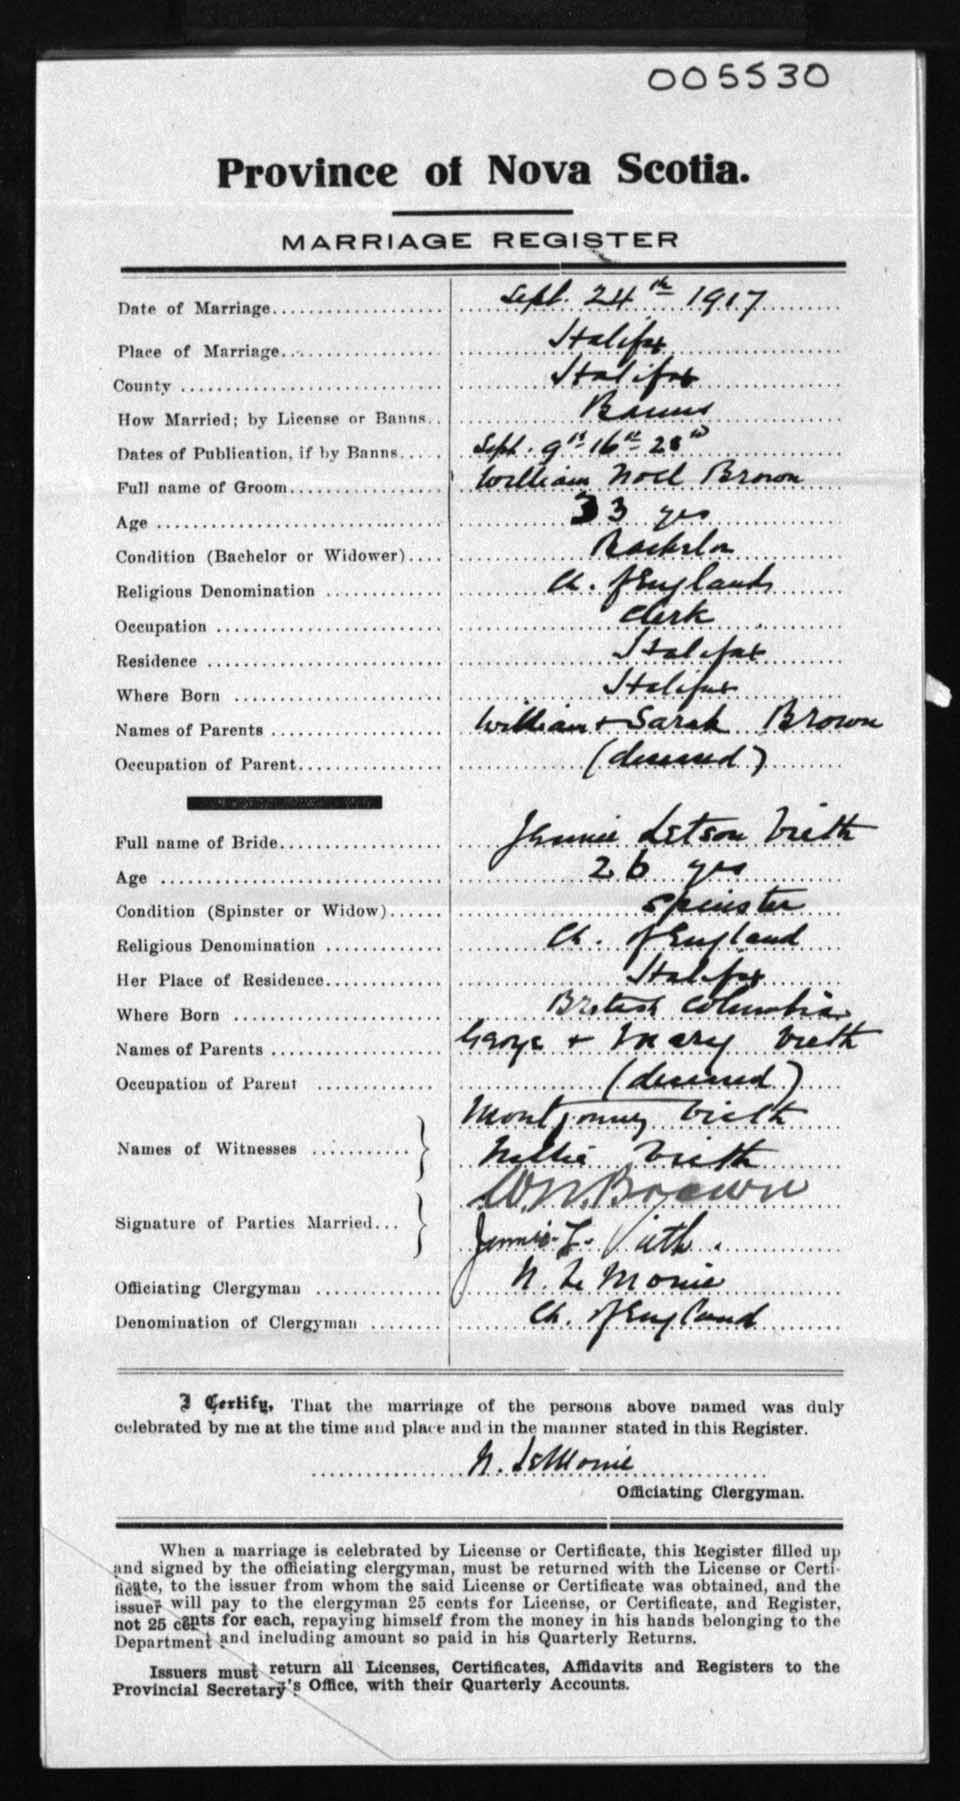 005530
Province of Nova Scotia.
MARRIAGE REGISTER
Date of Marriage Sept. 24th 1917
Place of Marriage Halifax
County Halifax
How Married; by License or Banns Banns
Dates of Publication, if by Banns Sept. 9th 16th
Full name of Groom William Noel Brown
Age 33 yrs
Condition (Bachelor or Widower) Bachelor
Religious Denomination Ch. of England
Occupation Clerk
Residence Halifax
Where Born Halifax
Names of Parents William + Sarah Brown
Occupation of Parent (deceased)
Full name of Bride Jennie Letson Vieth
Age 26 yrs
Condition (Spinster or Widow) Spinster
Religious Denomination Ch. of England
Her Place of Residence Halifax
Where Born British Columbia
Names of Parents George + Mary Vieth
Occupation of Parent (deceased)
Montgomery Vieth
Names of Witnesses
Nellie Vieth
W. N. Brown
Signature of Parties Married
Jennie L. Vieth.
Officiating Clergyman N. LeMoine
Denomination of Clergyman Ch. of England
I Certify, That the marriage of the persons above named was duly
celebrated by me at the time and place and in the manner stated in this Register.
N. LeMoine
Officiating Clergyman.
When a marriage is celebrated by License or Certificate, this Register filled up
and signed by the officiating clergyman, must be returned with the License or Certi-
ficate, to the issuer from whom the said License or Certificate was obtained, and the
issuer will pay to the clergyman 25 cents for License, or Certificate, and Register,
not 25 cents for each, repaying himself from the money in his hands belonging to the
Department and including amount so paid in his Quarterly Returns.
Issuers must return all Licenses, Certificates, Affidavits and Registers to the
Provincial Secretary's Office, with their Quarterly Accounts.